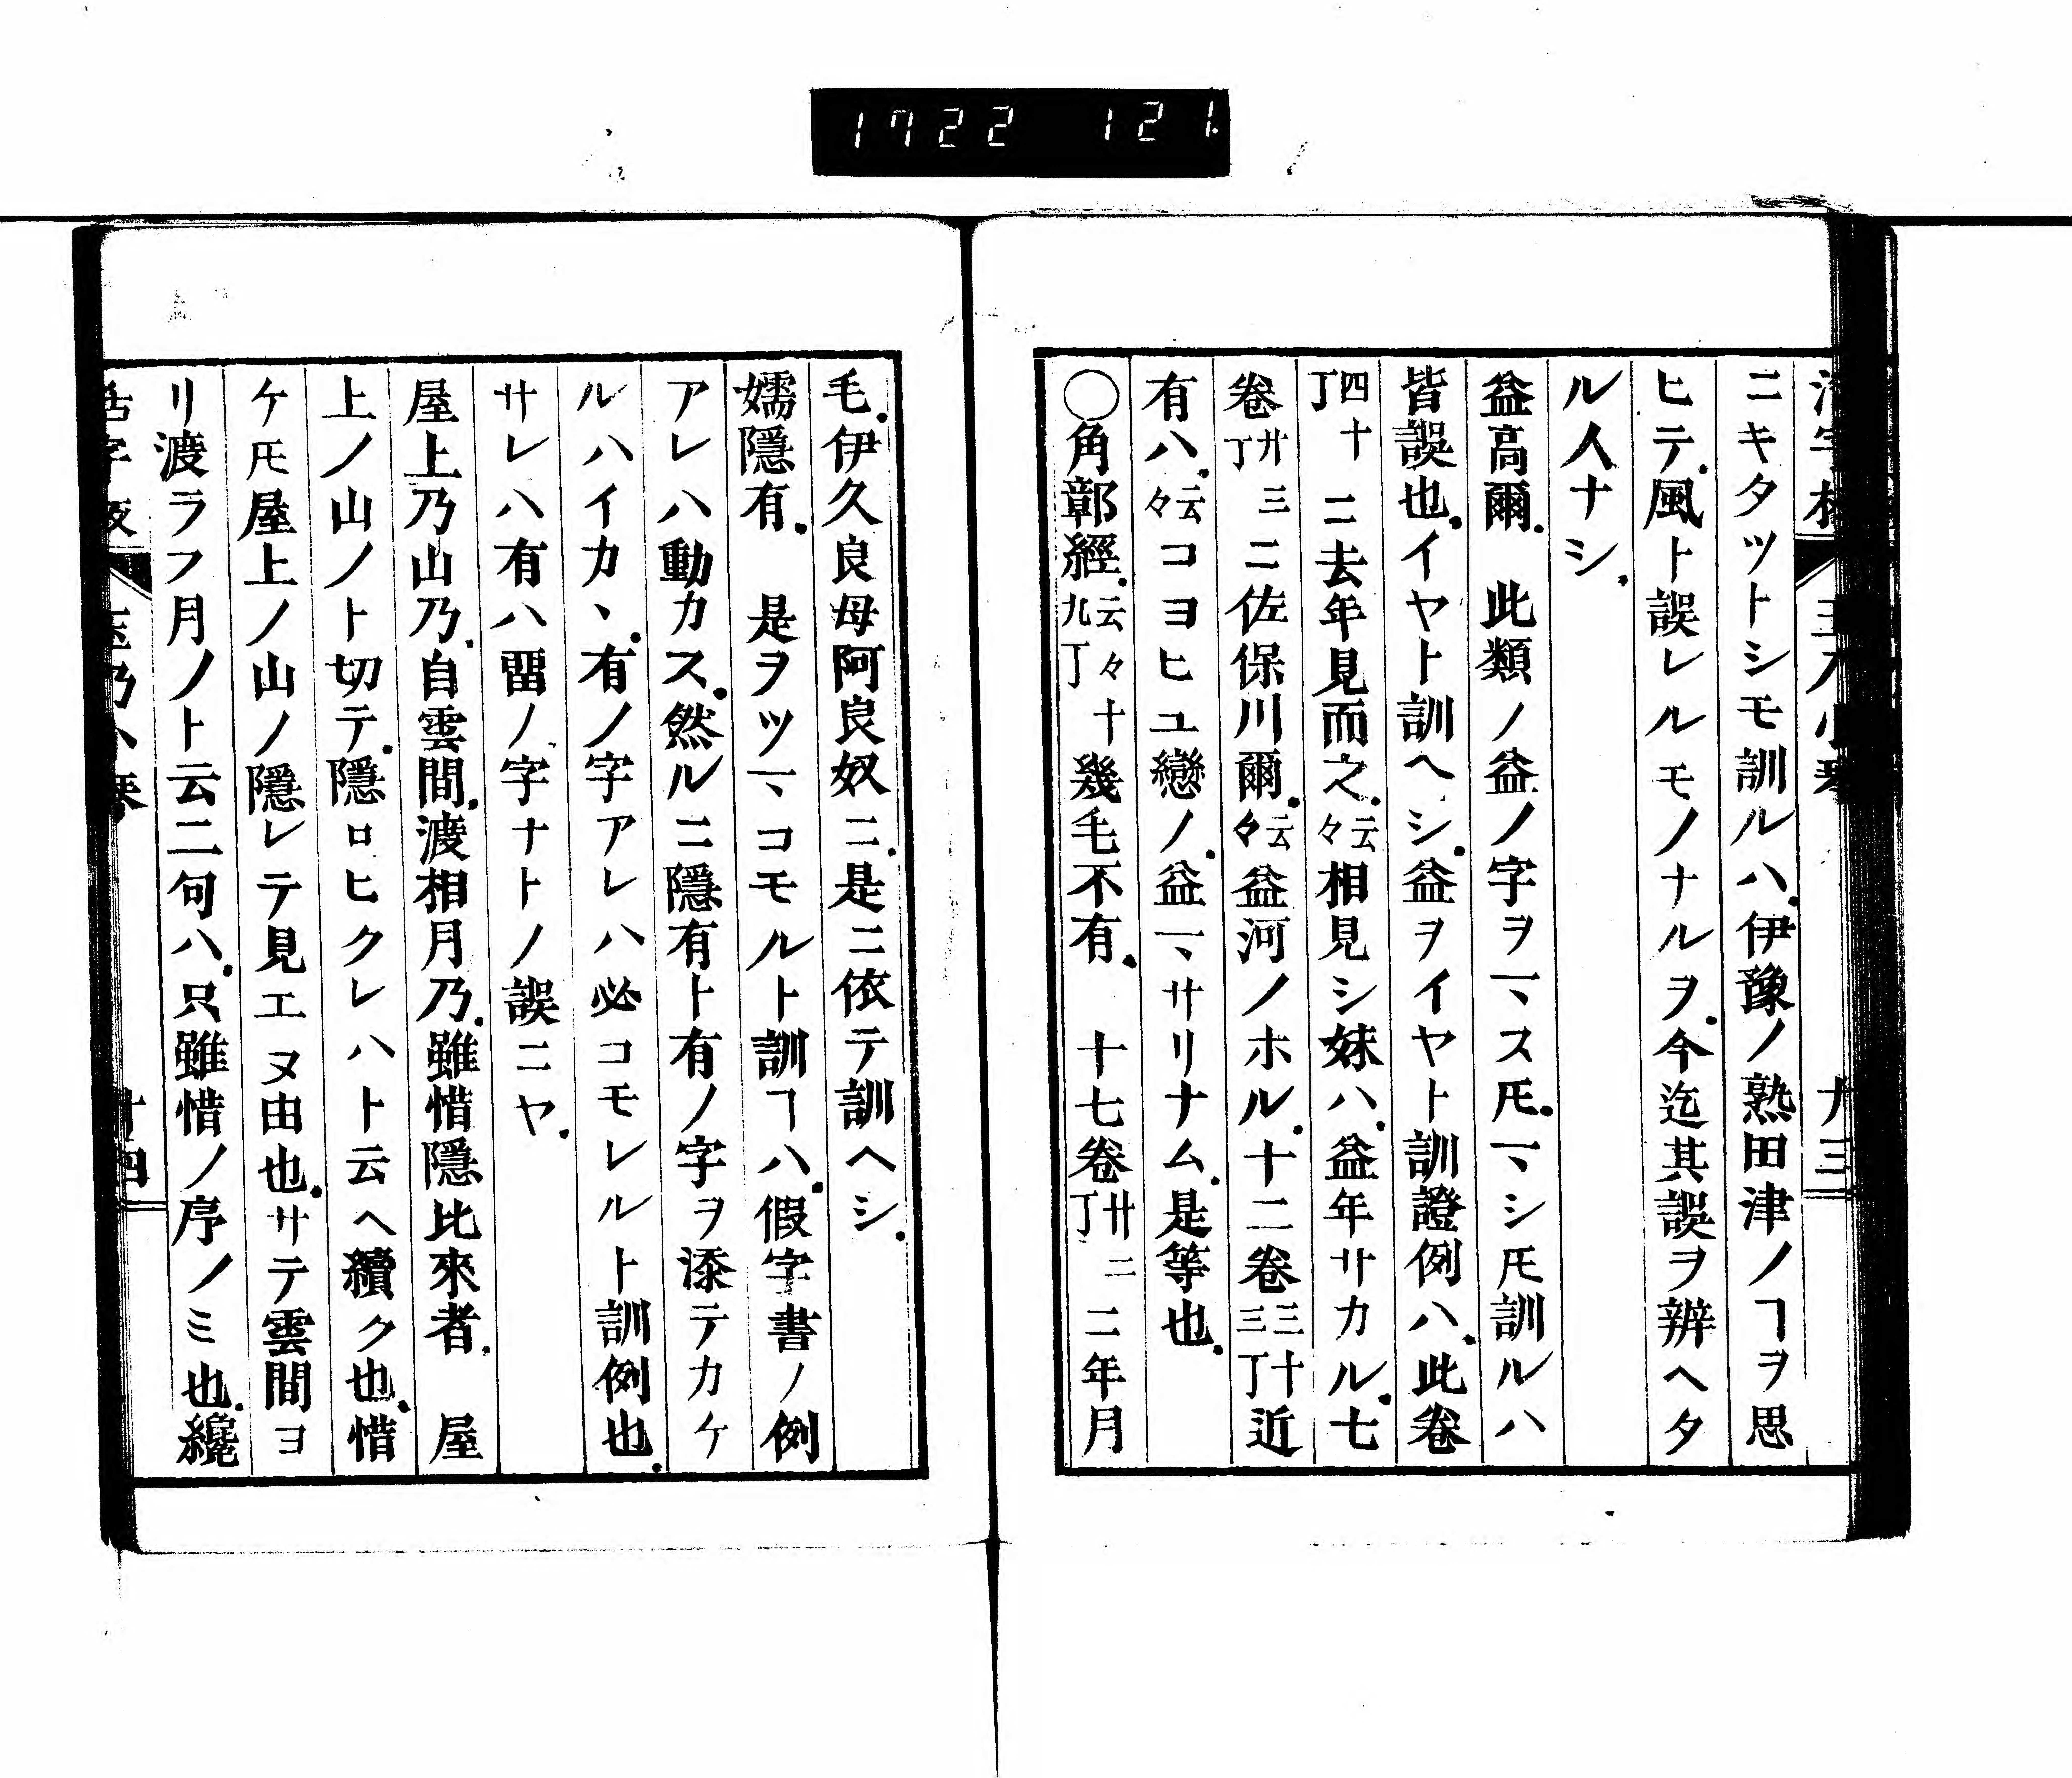 1722 121.
ニキタツトシモ訓ルハ.伊豫ノ熟田津ノヿヲ思
ヒテ.風ト誤レルモノナルヲ.今迄其誤ヲ辨ヘタ
ル人ナシ.
益高爾. 此類ノ益ノ字ヲマス𪜈.マシ𪜈訓ルハ
皆誤也.イヤト訓ヘシ.益ヲイヤト訓證例ハ.此卷
四十丁ニ去年見而之.云々相見シ妹ハ.益年サカル.七
卷廿三丁ニ佐保川爾.云々益河ノホル.十二卷三十三丁近
有ハ.云々コヨヒユ戀ノ.益マサリナム.是等也.
○角鄣經.云々十九丁幾毛不有. 十七卷廿二丁二年月
毛.伊久良母阿良奴ニ.是ニ依テ訓ヘシ.
嬬隱有. 是ヲツマコモルト訓ヿハ.假字書ノ例
アレハ動カス.然ルニ隱有ト有ノ字ヲ添テカケ
ルハイカヽ.有ノ字アレハ必コモレルト訓例也.
サレハ有ハ畱ノ字ナトノ誤ニヤ.
屋上乃山乃.自雲間.渡相月乃.雖惜隱比來者. 屋
上ノ山ノト切テ.隱ロヒクレハト云ヘ續ク也.惜
ケ𪜈屋上ノ山ノ隱レテ見エヌ由也.サテ雲間ヨ
リ渡ラフ月ノト云二句ハ.只雖惜ノ序ノミ也.纔
十四